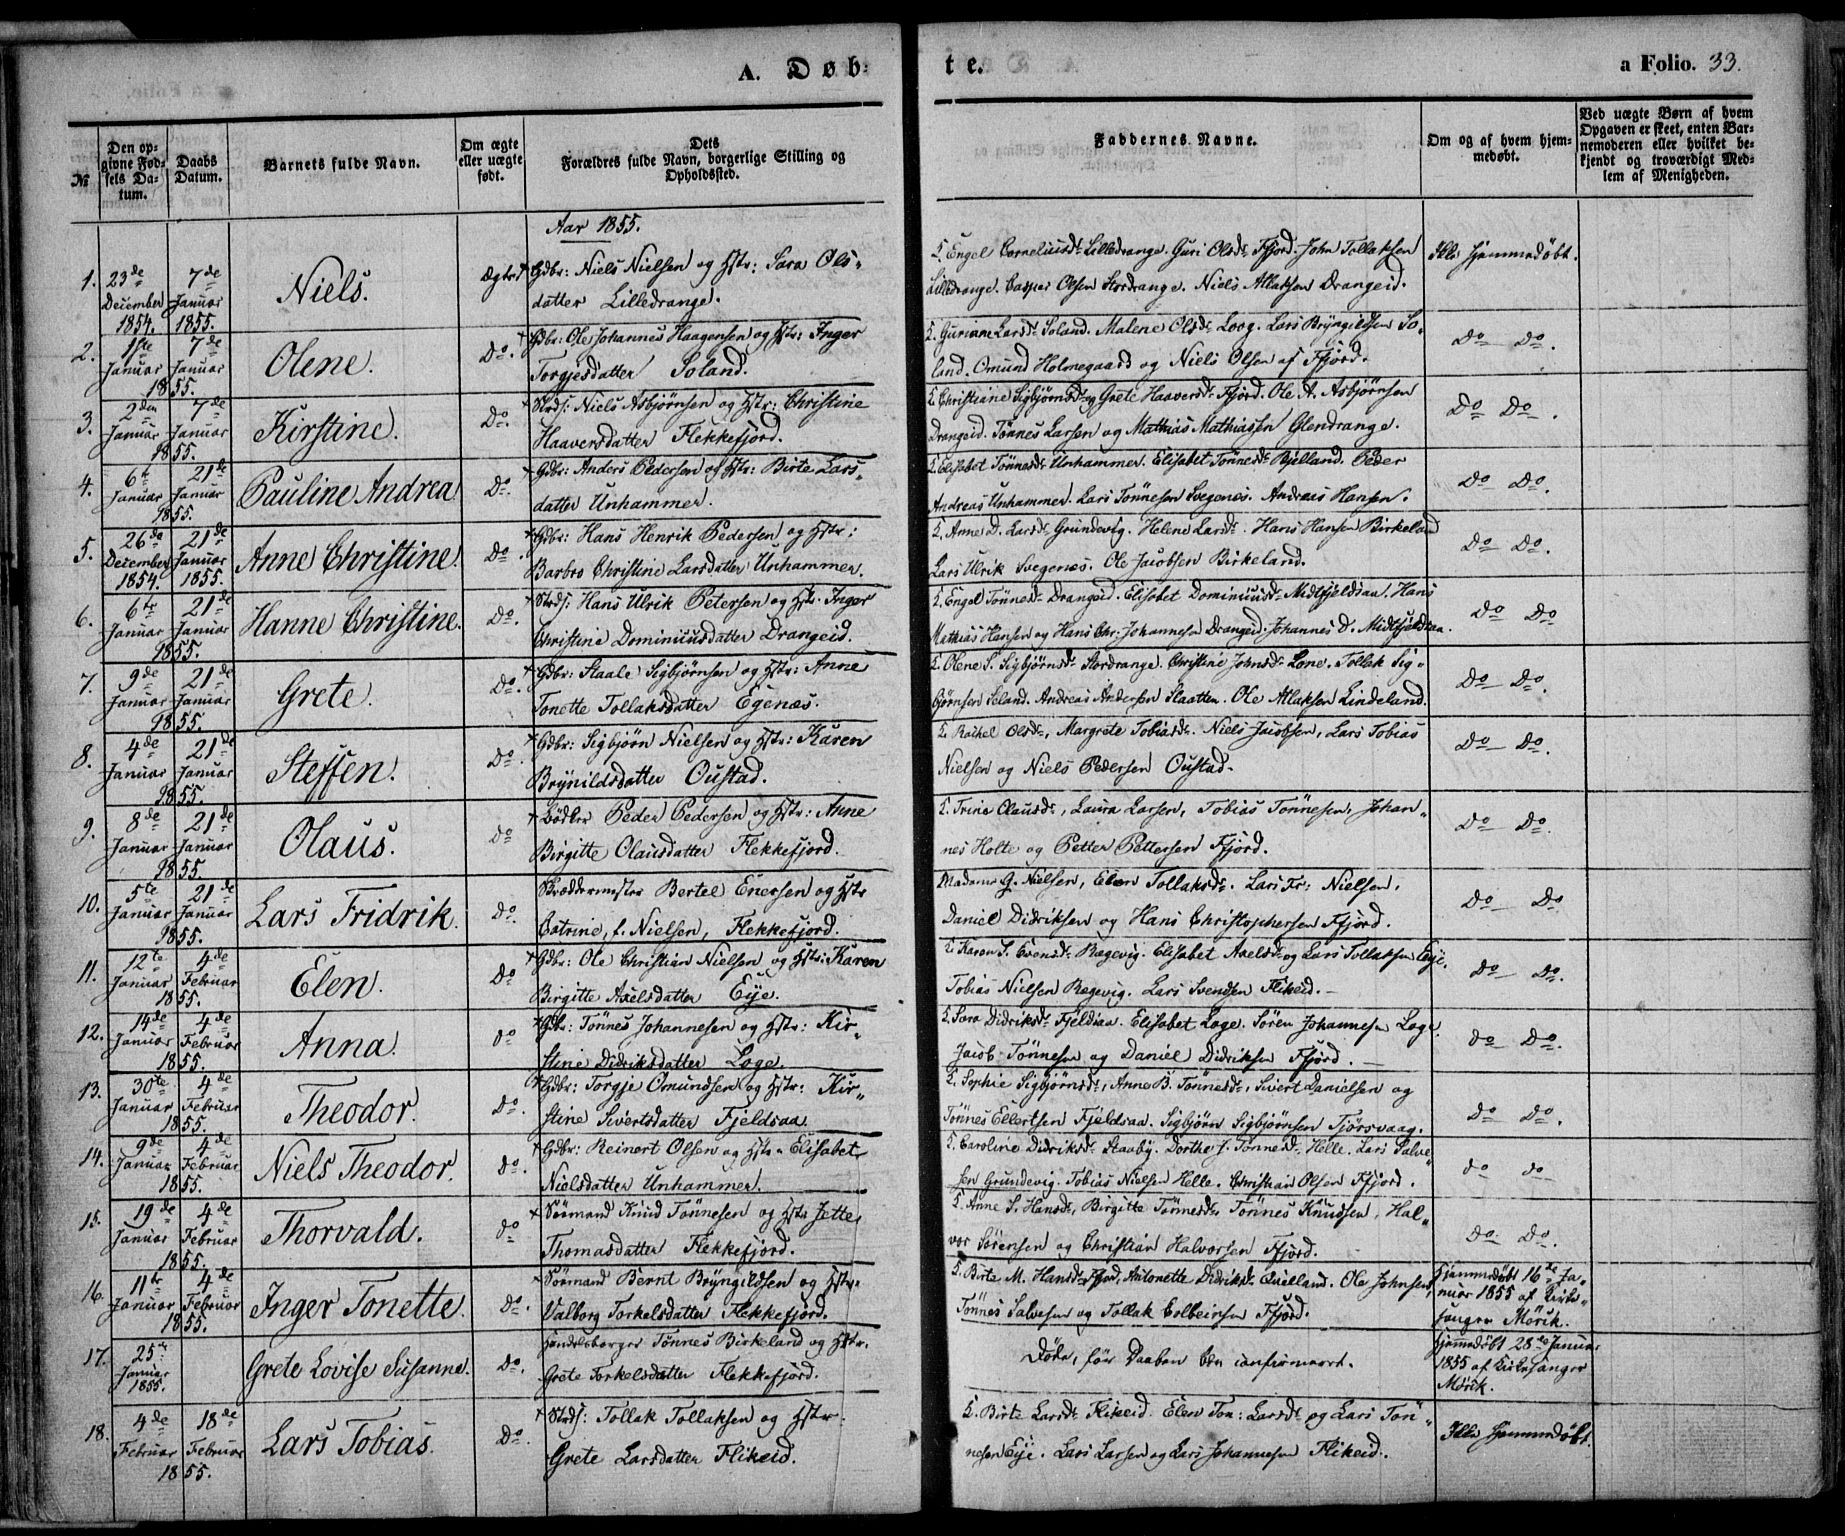 A. Døb-
te.
a Folio. 33.
№
Den op-
givne Fød-
sels Da-
tum.
Daabs
Datum.
Barnets fulde Navn.
Om ægte
eller uægte
født.
Dets
Forældres fulde Navn, borgerlige Stilling og
Opholdssted.
Faddernes Navne.
Om og af hvem hjem-
medøbt.
Ved uægte Børn af hvem
Opgaven er skeet, enten Bar-
nemoderen eller hvilket be-
kjendt og troværdigt Med-
lem af Menigheden.
Aar 1855.
1. 23de December 1854. 7de Januar 1855. Niels. Ægte
Gdbr: Niels Nielsen og Hstr: Sara Ols-
datter Lilledrange.
Engel Corneliusd: Lilledrange. Guri Olsd: Fjord. John Tollaksen
Lilledrange. Casper Olsen Stordrange. Niels Atlaksen Drangeid.
Ikke hjemmedøbt.
2. 1ste Januar 7de Januar 1855. Olene. Do.
Gdbr: Ole Johannes Haagensen og Hstr: Inger
Torgjesdatter Soland.
Guriam Larsd: Soland. Malene Olsd: Loog. Lars Bryngildsen So-
land. Omund Holmegaard og Niels Olsen af Fjord.
Do Do.
3. 2den Januar 7de Januar 1855. Kirstine. Do.
Strds: Niels Asbjørnsen og Hstr: Christine
Haaversdatter Flekkefjord.
Christiane Sigbjørnsd: og Grete Haaversd: Fjord. Ole A. Asbjørnsen
Drangeid. Tønnes Larsen og Mathias Mathiassen Glendrange.
Do Do.
4. 6te Januar 21de Januar 1855. Pauline Andrea. Do.
Gdbr: Anders Pedersen og Hstr: Birte Lars-
datter Unhammer.
Elisabet Tønnesd: Unhammer. Elisabet Tønnesd: Bjelland. Peder
Andreas Unhammer. Lars Tønnesen Svegenæs. Andreas Hansen.
Do Do.
5. 26de December 1854. 21de Januar 1855. Anne Christine. Do.
Gdbr: Hans Henrik Pedersen og Hstr:
Barbro Christine Larsdatter Unhammer.
Anne D. Larsd: Grundevig. Helene Larsd: Hans Hansen Birkeland
Lars Ulrik Svegenæs. Ole Jacobsen Birkeland.
Do Do.
6. 6te Januar 21de Januar 1855. Hanne Christine. Do.
Strds: Hans Ulrik Petersen og Hstr. Inger
Christine Dominicusdatter Drangeid.
Engel Tønnesd: Drangeid. Elisabet Dominicusd: Midtfjeldsaa. Hans
Mathias Hansen og Hans Chr: Johannesen Drangeid. Johannes D. Midtfjeldsaa.
Do Do
7. 9de Januar 21de Januar 1855. Grete. Do.
Gdbr: Staale Sigbjørnsen og Hstr: Anne
Tonette Tollaksdatter Egenæs.
Olene S. Sigbjørnsd: Stordrange. Christine Johnsd: Lone. Tollak Sig-
bjørnsen Seland. Andreas Andersen Slaatten. Ole Atlaksen Lindeland.
Do Do.
8. 4de Januar 21de Januar 1855. Steffen. Do.
Gdbr: Sigbjørn Nielsen og Hstr: Karen
Brynildsdatter Oustad.
Rakel Olsd:, Margrete Tobiasd: Niels Jacobsen, Lars Tobias
Nielsen og Niels Pedersen Oustad.
Do Do.
9. 8de Januar 21de Januar 1855. Olaus. Do
Bødker Peder Pedersen og Hstr: Anne
Birgitte Olausdatter Flekkefjord.
Trine Clausd:, Laura Larsen, Tobias Tønnesen, Johan-
nes Holte og Petter Pettersen Fjord.
Do Do.
10. 5te Januar 21de Januar 1855. Lars Fridrik. Do.
Skræddermester Bertel Enersen og Hstr
Catrine, f. Nielsen, Flekkefjord.
Madame G. Nielsen, Elen Tollaksd: Lars Fr: Nielsen,
Daniel Didriksen og Hans Christophersen Fjord.
Do Do
11. 12te Januar 4de Februar 1855. Elen. Do
Gdbr: Ole Christian Nielsen og Hstr: Karen
Birgitte Axelsdatter Eye.
Karen S. Svensd: Rægevig. Elisabet Axelsd: og Lars Tollaksen Eye.
Tobias Nielsen Rægevig. Lars Svendsen Flikeid.
Do Do.
12. 14de Januar 4de Februar 1855. Anna. do
Gbr: Tønnes Johannesen og Hstr: Kir-
stine Didriksdatter Loge.
Sara Didriksd: Fjeldsaa. Elisabet Loge. Søren Johannesen Loge.
Jacob Tønnesen og Daniel Didriksen Fjord.
do Do.
13. 30te Januar 4de Februar 1855. Theodor. Do.
Gdbr: Torgje Omundsen og Hstr: Kir-
stine Sivertsdatter Fjeldsaa.
Sophie Sigbjørnsd:, Anne B. Tønnesd:, Sivert Danielsen og
Tønnes Ellertsen Fjeldsaa. Sigbjørn Sigbjørnsen Tjorsvaag.
Do Do.
14. 9de Januar 4de Februar 1855. Niels Theodor. Do.
Gdbr: Reinert Olsen og Hstr. Elisabet
Nielsdatter Unhammer.
Caroline Didriksd: Staaby. Dorthe J. Tønnesd: Helle. Lars Salve-
sen Grundevig. Tobias Nielsen Helle. Christian Olsen Fjord.
do do
15. 19de Januar 4de Februar 1855. Thorvald. do
Sømand Knud Tønnesen og Hstr Jette
Thomasdatter Flekkefjord.
Anne S. Hansd:, Birgitte Tønnesd:, Tønnes Knudsen, Hal-
vor Sørensen og Christian Halvorsen Fjord.
Do. Do.
16. 11te Januar 4de Februar 1855. Inger Tonette. Do.
Sømand Bernt Bryngildsen og Hstr:
Valborg Torkelsdatter Flekkefjord.
Birte M. Hansd: Fjord, Antonette Didriksd: Qvelland. Ole Johnsen,
Tønnes Salvesen og Tollak Colbeinsen Fjord.
Hjemmedøbt 16de Ja-
nuar 1855 af Kirke-
sanger Mörik.
17. 25de Januar 1855. Grete Lovise Susanne. Do.
Handelsborger Tønnes Birkeland og Hstr.
Grete Torkelsdatter Flekkefjord.
Døde, før Daaben blev confirmeret.
Hjemmedøbt 28de Januar
1855 af Kirkesanger
Mörik.
18. 4de Februar 18de Februar 1855. Lars Tobias. Do.
Strds: Tollak Tollaksen og Hstr:
Grete Larsdatter Flikeid.
Birte Larsd: Flikeid. Elen Ton: Larsd: og Lars Tøn-
nesen Eye. Lars Larsen og Lars Johannesen Flikeid.
Ikke hjemmedøbt.